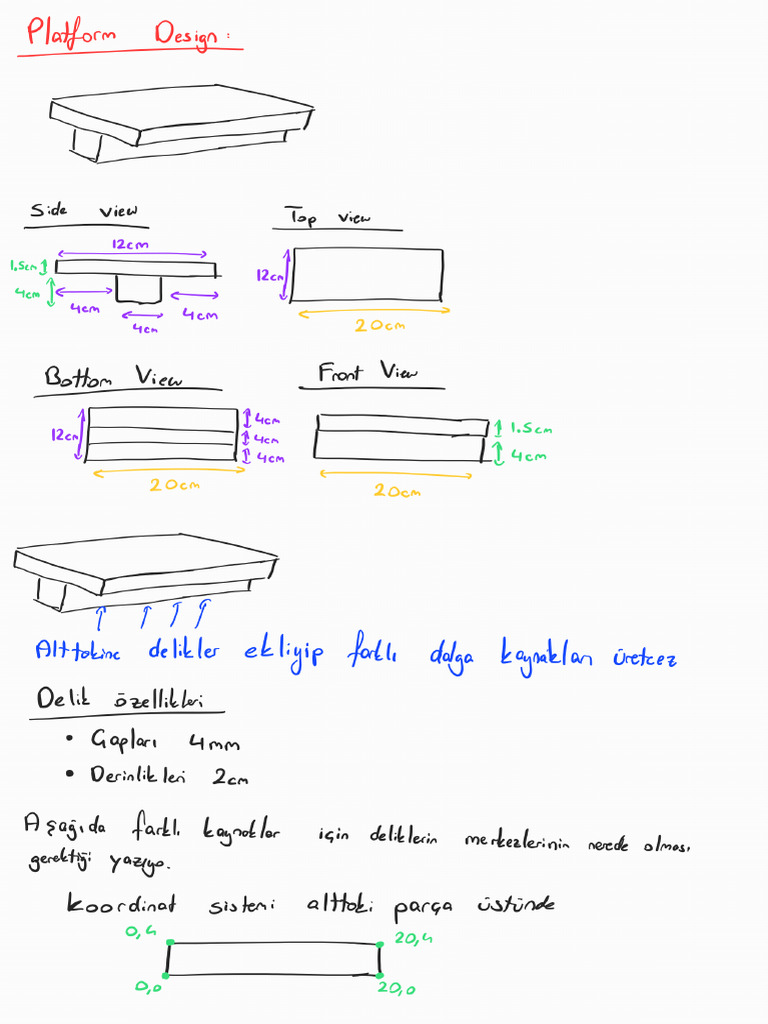 Platform Design:
Side view
Top view
12cm
1.5cm
4cm
4cm
4cm
4cm
12cm
20cm
Bottom View
Front View
12cm
4cm
4cm
4cm
20cm
1.5cm
4cm
20cm
Alttakine delikler ekliyip farklı dalga kaynakları üretcez
Delik özellikleri
• Çapları 4mm
• Derinlikleri 2cm
Aşağıda farklı kaynaklar için deliklerin merkezlerinin nerede olması
gerektiği yazıyo.
koordinat sistemi alttaki parça üstünde
0,4
20,4
0,0
20,0